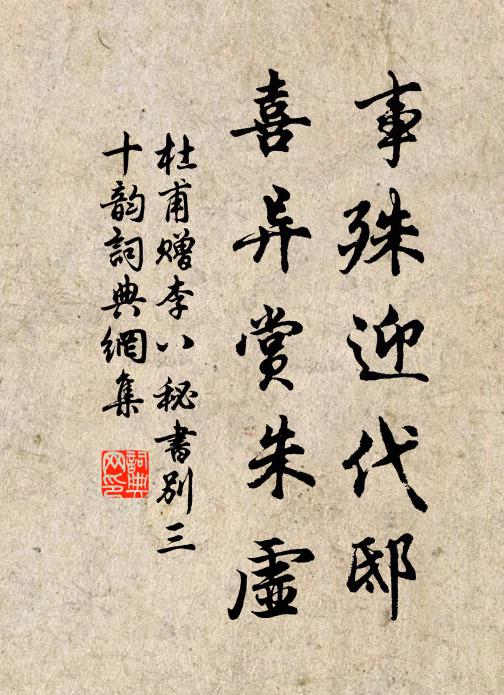 事殊迎代邸
喜异赏朱虚
杜甫赠李八秘书别三
十韵詞典網集
詞典网印